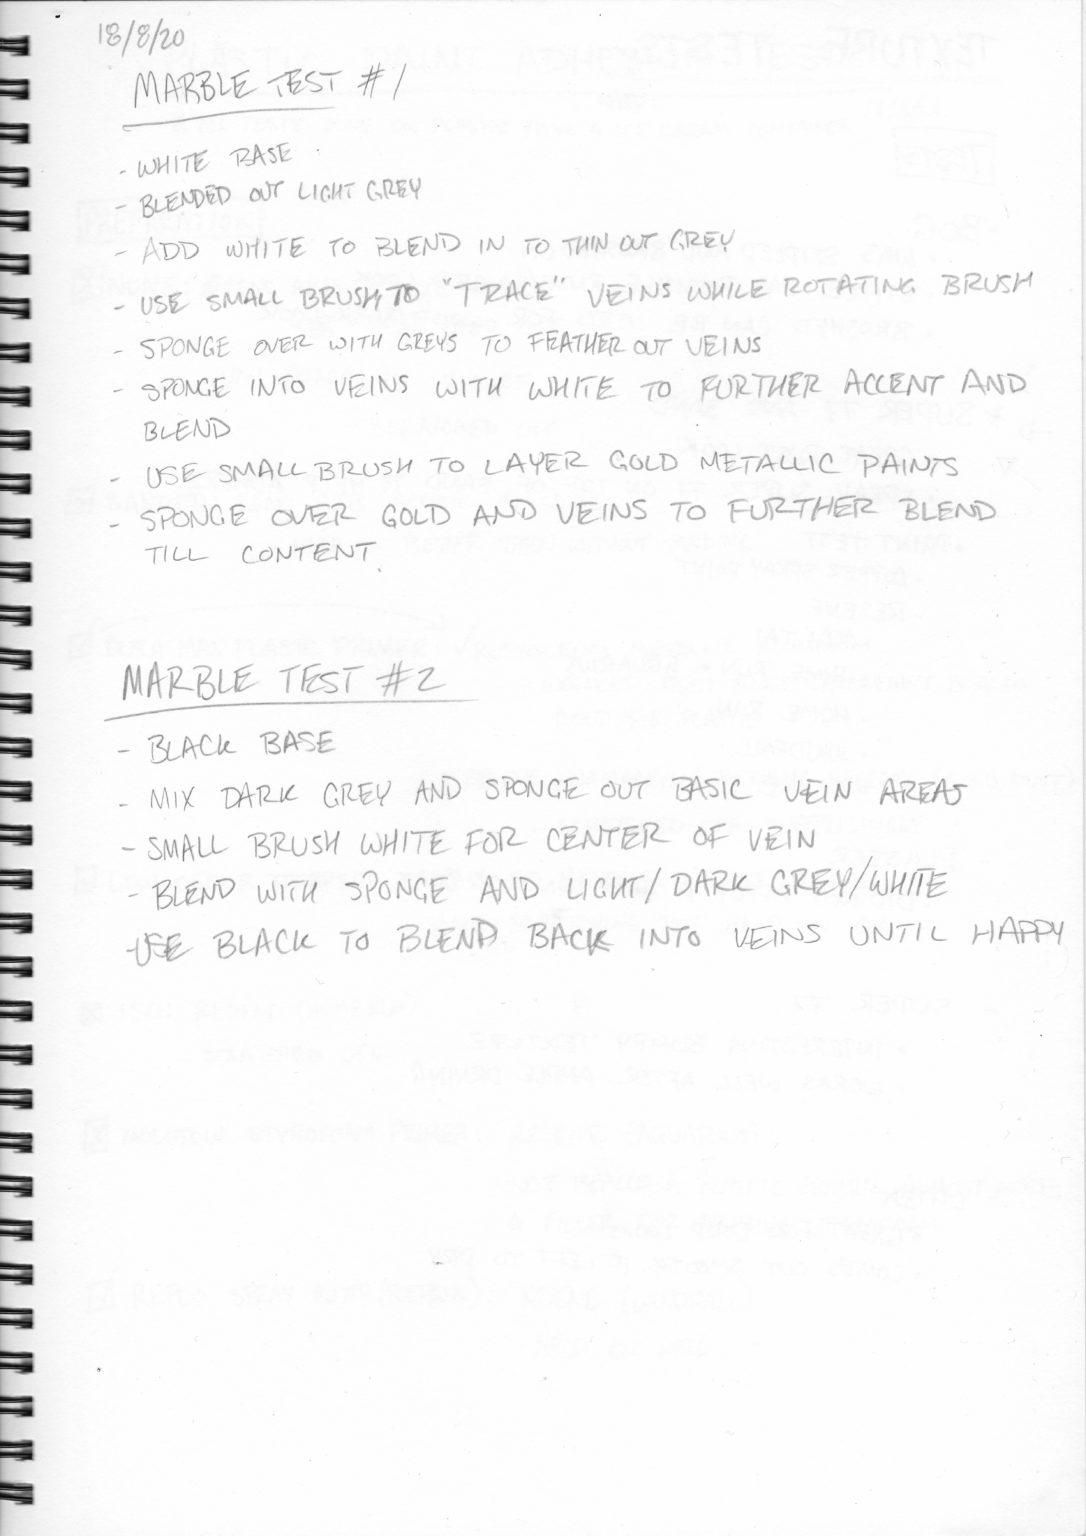 18/8/20
MARBLE TEST #1
- WHITE BASE
- BLENDED OUT LIGHT GREY
- ADD WHITE TO BLEND IN TO THIN OUT GREY
- USE SMALL BRUSH TO "TRACE" VEINS WHILE ROTATING BRUSH
- SPONGE OVER WITH GREYS TO FEATHER OUT VEINS
- SPONGE INTO VEINS WITH WHITE TO FURTHER ACCENT AND
BLEND
- USE SMALL BRUSH TO LAYER GOLD METALLIC PAINTS
- SPONGE OVER GOLD AND VEINS TO FURTHER BLEND
TILL CONTENT.
MARBLE TEST #2
- BLACK BASE
- MIX DARK GREY AND SPONGE OUT BASIC VEIN AREAS
- SMALL BRUSH WHITE FOR CENTER OF VEIN
- BLEND WITH SPONGE AND LIGHT/DARK GREY/WHITE
- USE BLACK TO BLEND BACK INTO VEINS UNTIL HAPPY